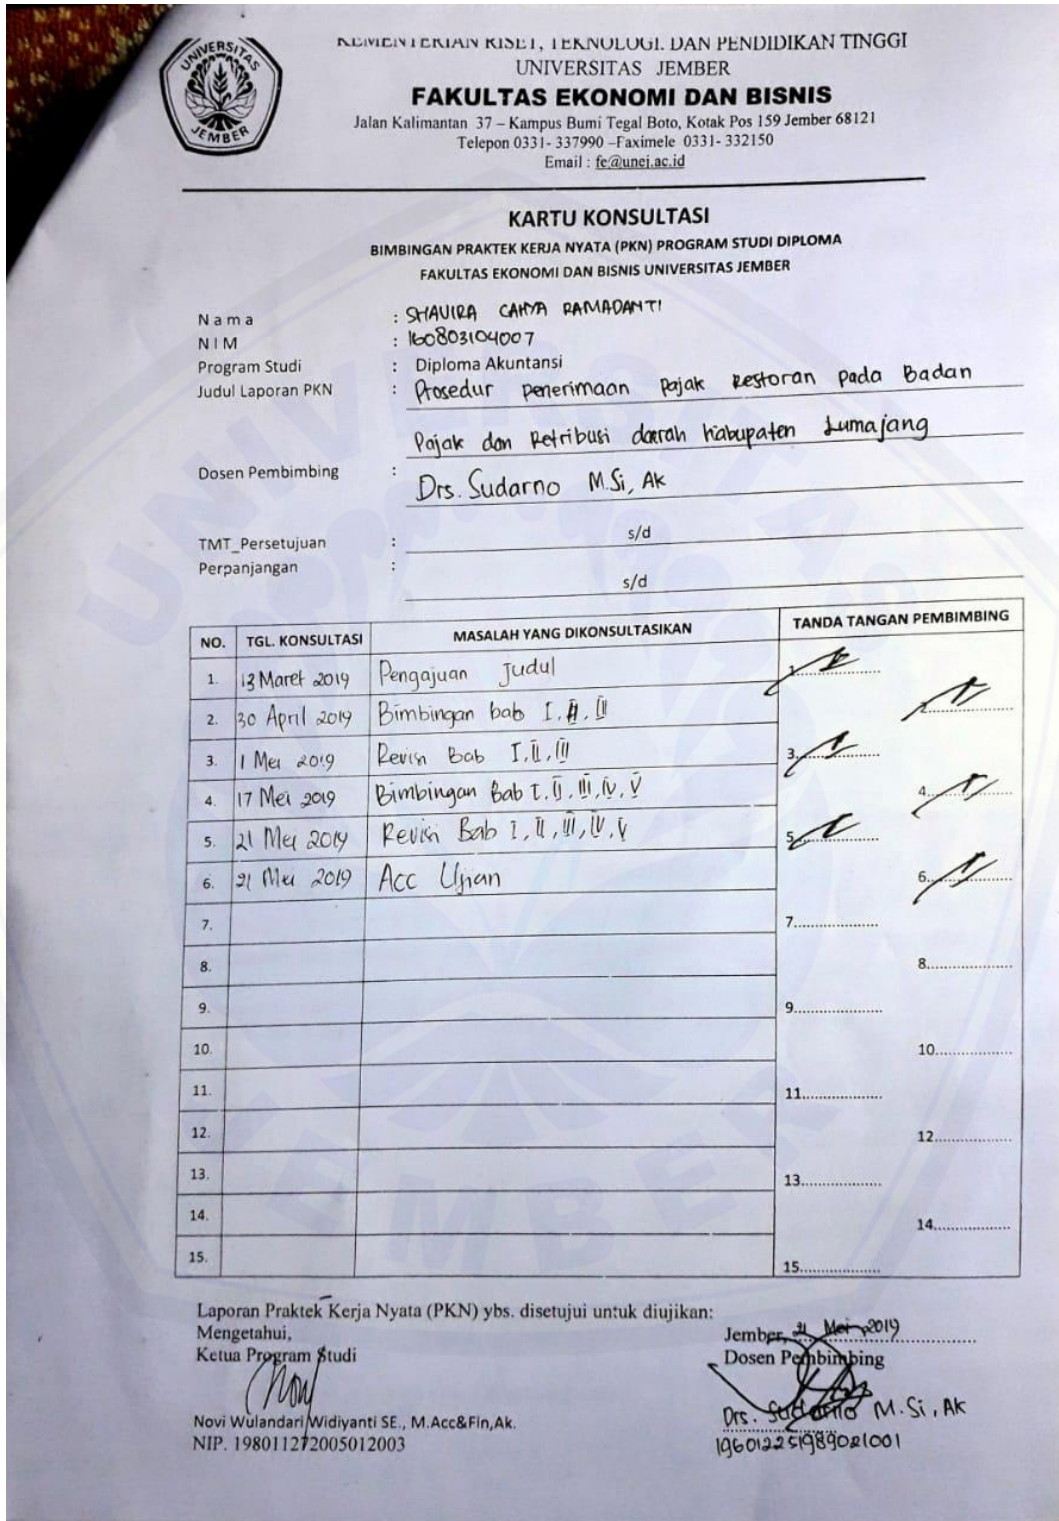 UNIVERSITAS
JEMBER
KEMENTERIAN RISET, TEKNOLOGI. DAN PENDIDIKAN TINGGI
UNIVERSITAS JEMBER
FAKULTAS EKONOMI DAN BISNIS
Jalan Kalimantan 37 – Kampus Bumi Tegal Boto, Kotak Pos 159 Jember 68121
Telepon 0331- 337990 –Faximele 0331- 332150
Email : fe@unej.ac.id
KARTU KONSULTASI
BIMBINGAN PRAKTEK KERJA NYATA (PKN) PROGRAM STUDI DIPLOMA
FAKULTAS EKONOMI DAN BISNIS UNIVERSITAS JEMBER
Nama : SHAVIRA CAHYA RAMADANTI
NIM : 160803104007
Program Studi : Diploma Akuntansi
Judul Laporan PKN : Prosedur penerimaan pajak Restoran pada Badan
Pajak dan Retribusi daerah kabupaten Lumajang
Dosen Pembimbing : Drs. Sudarno M.Si, Ak
TMT_Persetujuan : s/d
Perpanjangan : s/d
NO. TGL. KONSULTASI MASALAH YANG DIKONSULTASIKAN TANDA TANGAN PEMBIMBING
1. 13 Maret 2019 Pengajuan Judul 1..................
2. 30 April 2019 Bimbingan bab I, II, III 2..................
3. 1 Mei 2019 Revisi Bab I, II, III 3..................
4. 17 Mei 2019 Bimbingan Bab I, II, III, IV, V 4..................
5. 21 Mei 2019 Revisi Bab I, II, III, IV, V 5..................
6. 21 Mei 2019 Acc Ujian 6..................
7. 7..................
8. 8..................
9. 9..................
10. 10..................
11. 11..................
12. 12..................
13. 13..................
14. 14..................
15. 15..................
Laporan Praktek Kerja Nyata (PKN) ybs. disetujui untuk diujikan:
Mengetahui,
Jember, 21 Mei 2019
Ketua Program Studi
Dosen Pembimbing
Novi Wulandari Widiyanti SE., M.Acc&Fin,Ak.
Drs. Sudarno M.Si, Ak
NIP. 198011272005012003
196012251989021001